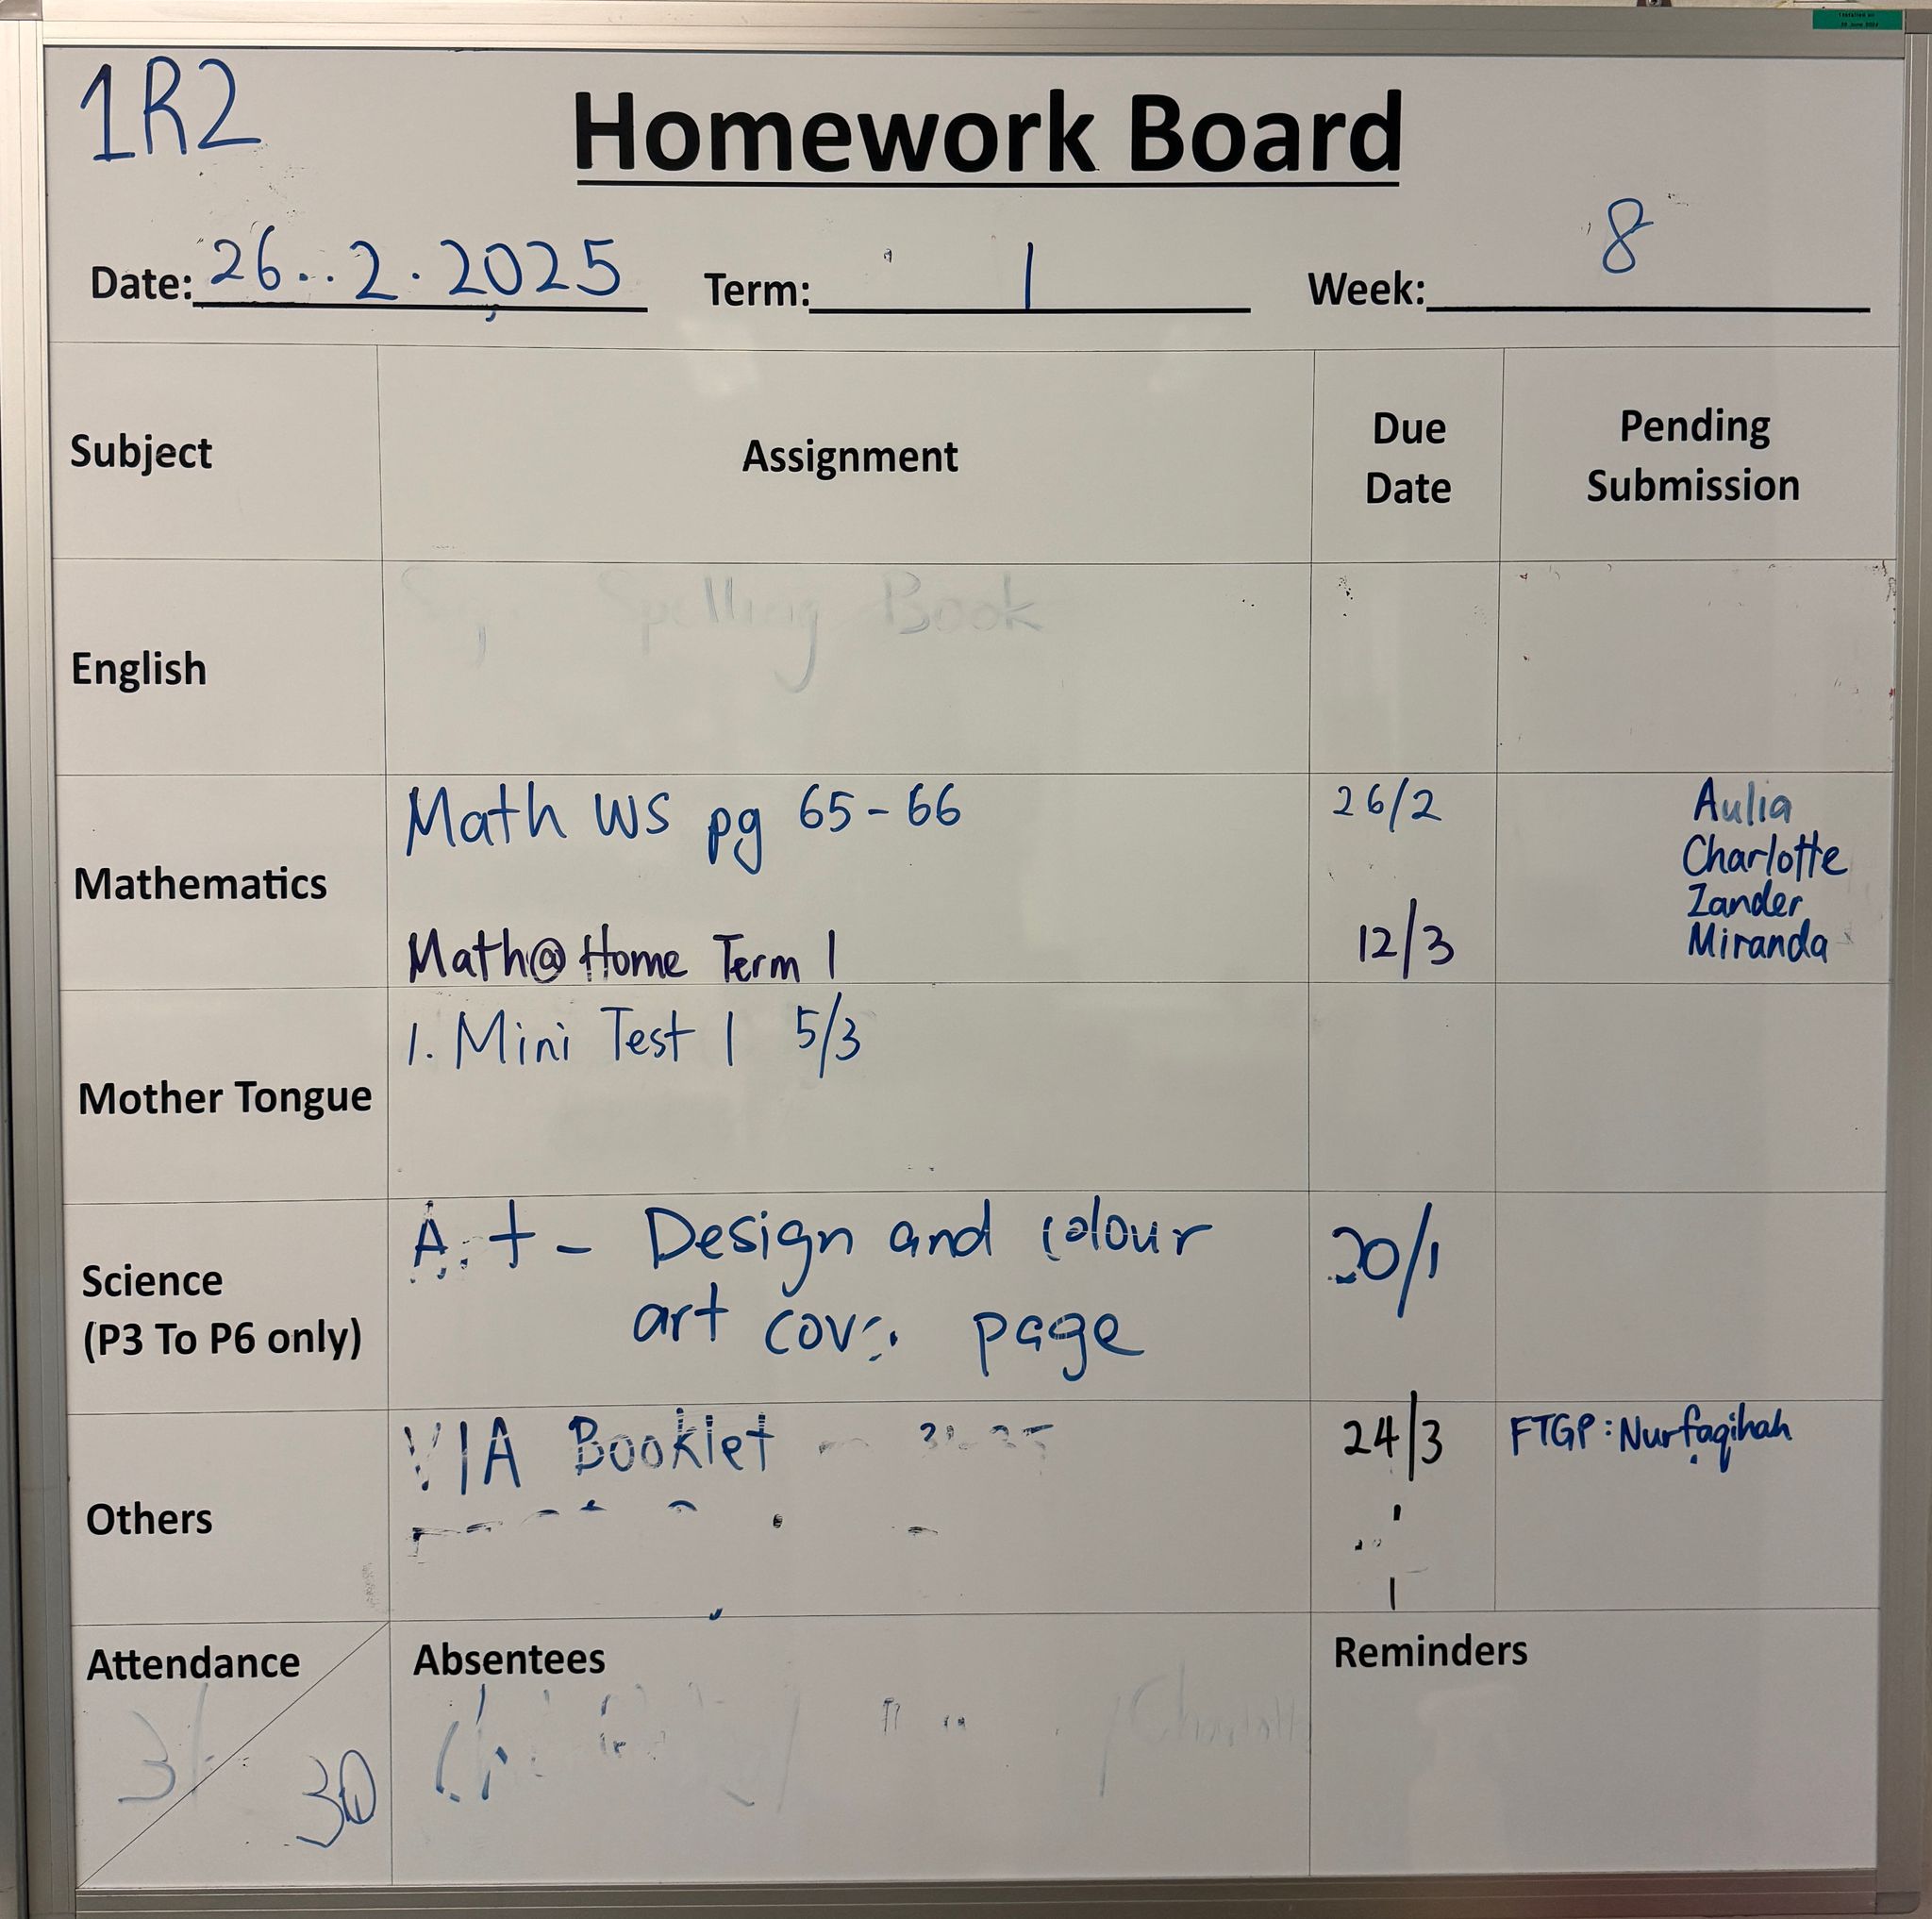 1R2
Homework Board
Date: 26..2.2025 Term: 1 Week: 8
Subject Assignment Due Date Pending Submission
English Spelling Book
Mathematics
Math WS pg 65-66 26/2
Math@Home Term 1 12/3
Aulia
Charlotte
Zander
Miranda
Mother Tongue
1. Mini Test 1 5/3
Science
(P3 To P6 only)
Art - Design and colour 20/1
art cover page
Others
VIA Booklet 24/3 FTGP: Nurfaqihah
Attendance Absentees Reminders
30